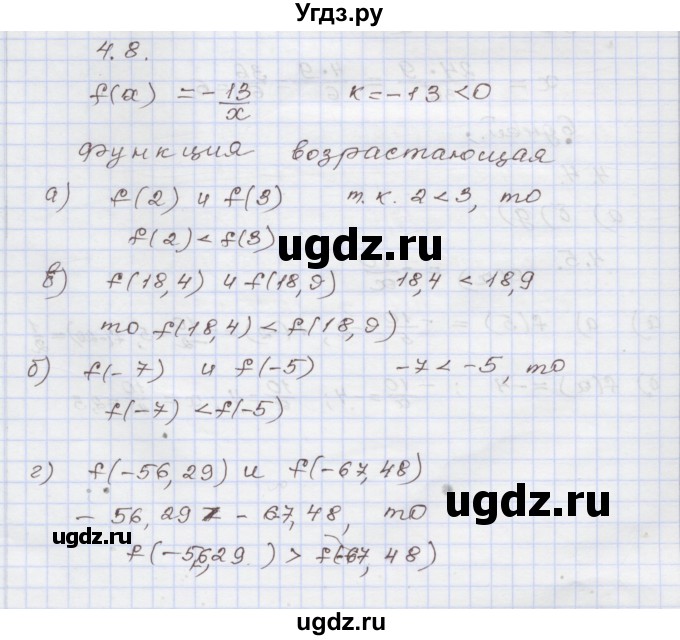 Угдз.ру
4.8.
f(x) = -13/x k = -13 < 0
Функция возрастающая
а) f(2) и f(3) т.к. 2 < 3, то
f(2) < f(3)
в) f(18,4) и f(18,9) 18,4 < 18,9
то f(18,4) < f(18,9)
б) f(-7) и f(-5) -7 < -5, то
f(-7) < f(-5)
г) f(-56,29) и f(-67,48)
-56,29 > -67,48, то
f(-56,29) > f(-67,48)
ugdz.ru
ugdz.ru
ugdz.ru
ugdz.ru